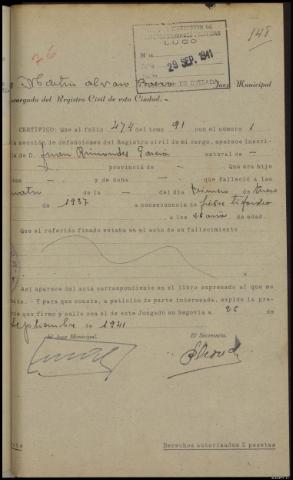 76
148
LUGO
29 SEP. 1941
Martin Alvaro
Juez Municipal
encargado del Registro Civil de esta Ciudad.
CERTIFICO: Que al folio 474 del tomo 91 con el número 1
la sección de defunciones del Registro civil de mi cargo, aparece inscri-
ta de D. Juan natural de -
provincia de - Que era hijo
- y de doña - que falleció a las
cuatro de la - del día primero de Enero
de 1937 a consecuencia de fiebre tifoidea
a los 26 años de edad.
Que el referido finado estaba en el acto de su fallecimiento
Así aparece del acta correspondiente en el libro expresado al que me
remito. - Y para que conste, a petición de parte interesada, expido la pre-
sente que firmo y sello con el de este Juzgado en Segovia a 25 de
Septiembre de 1941
El Juez Municipal.
El Secretario.
Derechos autorizados 2 pesetas